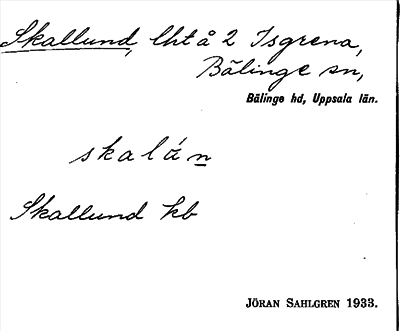 Skallund, lht å 2 Isgrena,
Bälinge sn,
Bälinge hd, Uppsala län.
skalán
Skallund kb
JÖRAN SAHLGREN 1933.